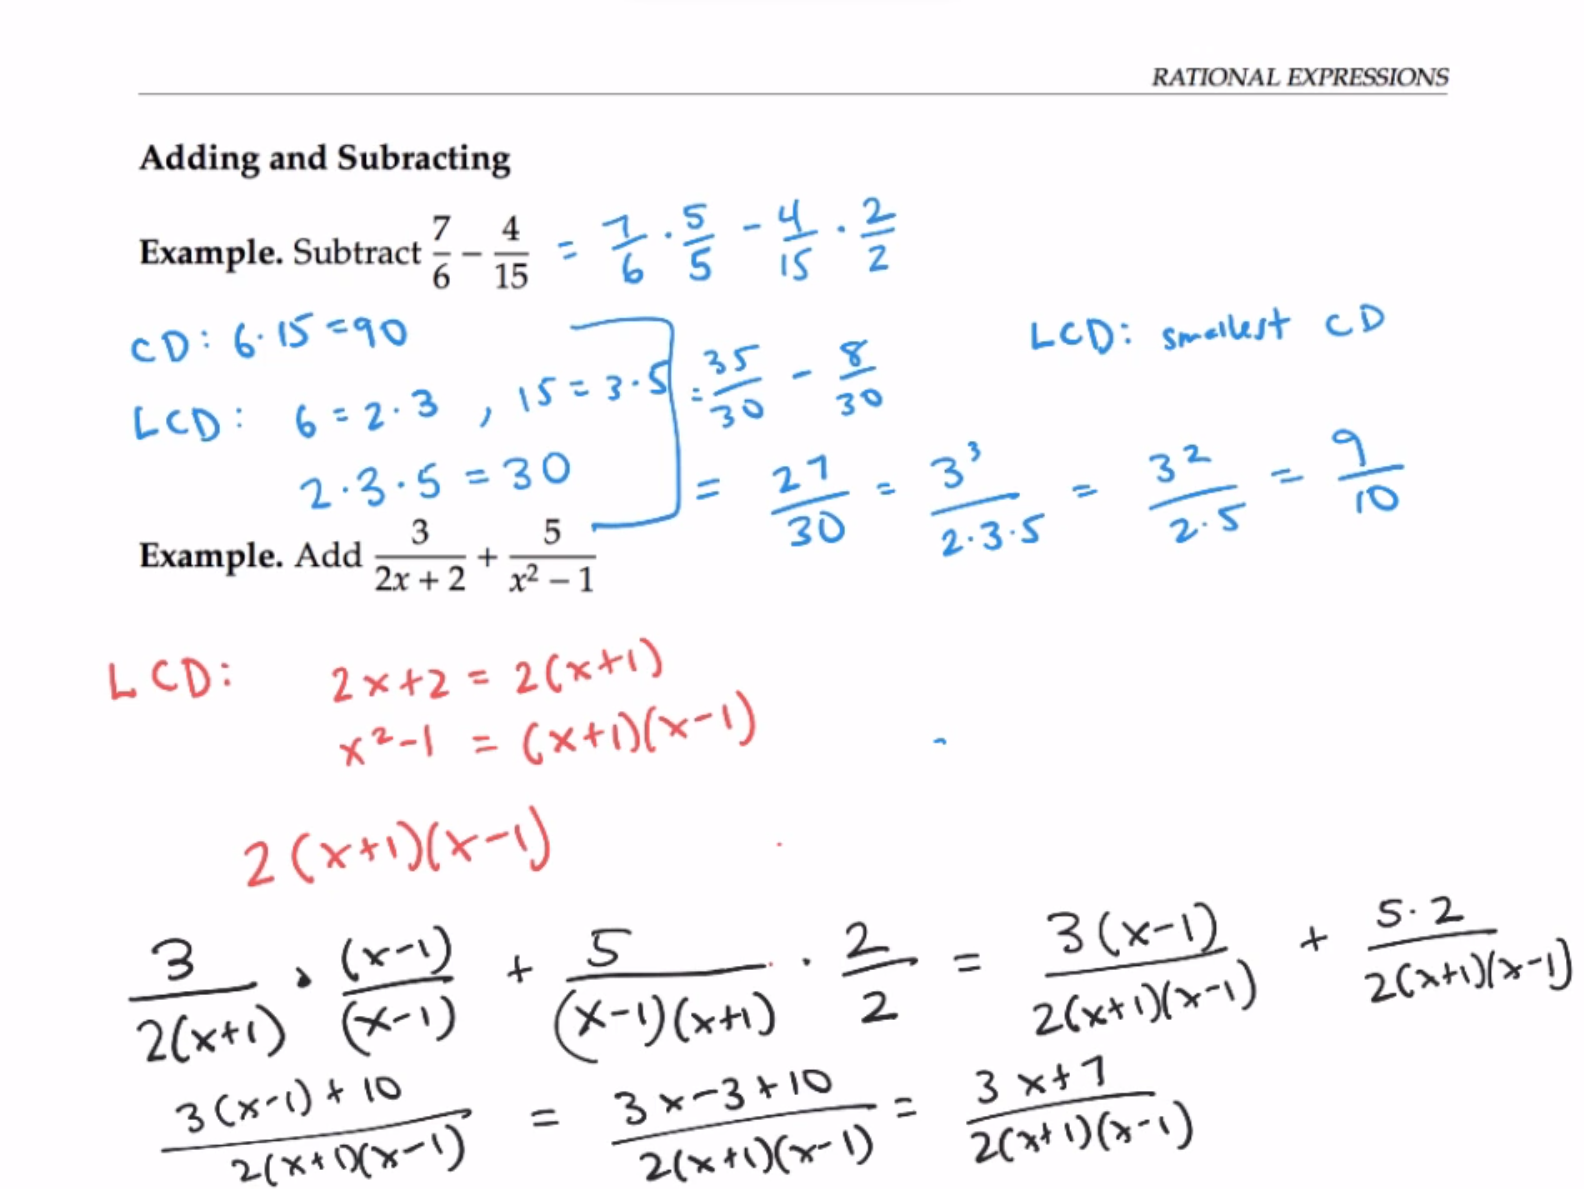 RATIONAL EXPRESSIONS
Adding and Subracting
Example. Subtract 7/6 − 4/15 = 7/6 · 5/5 − 4/15 · 2/2
CD: 6·15 = 90
LCD: smallest CD
LCD: 6 = 2·3 , 15 = 3·5
= 35/30 − 8/30
2·3·5 = 30
= 27/30 = 3³/(2·3·5) = 3²/(2·5) = 9/10
Example. Add 3/(2x + 2) + 5/(x² − 1)
LCD: 2x+2 = 2(x+1)
x²−1 = (x+1)(x−1)
2(x+1)(x−1)
3/(2(x+1)) · (x−1)/(x−1) + 5/((x−1)(x+1)) · 2/2 = 3(x−1)/(2(x+1)(x−1)) + 5·2/(2(x+1)(x−1))
(3(x−1)+10)/(2(x+1)(x−1)) = (3x−3+10)/(2(x+1)(x−1)) = (3x+7)/(2(x+1)(x−1))